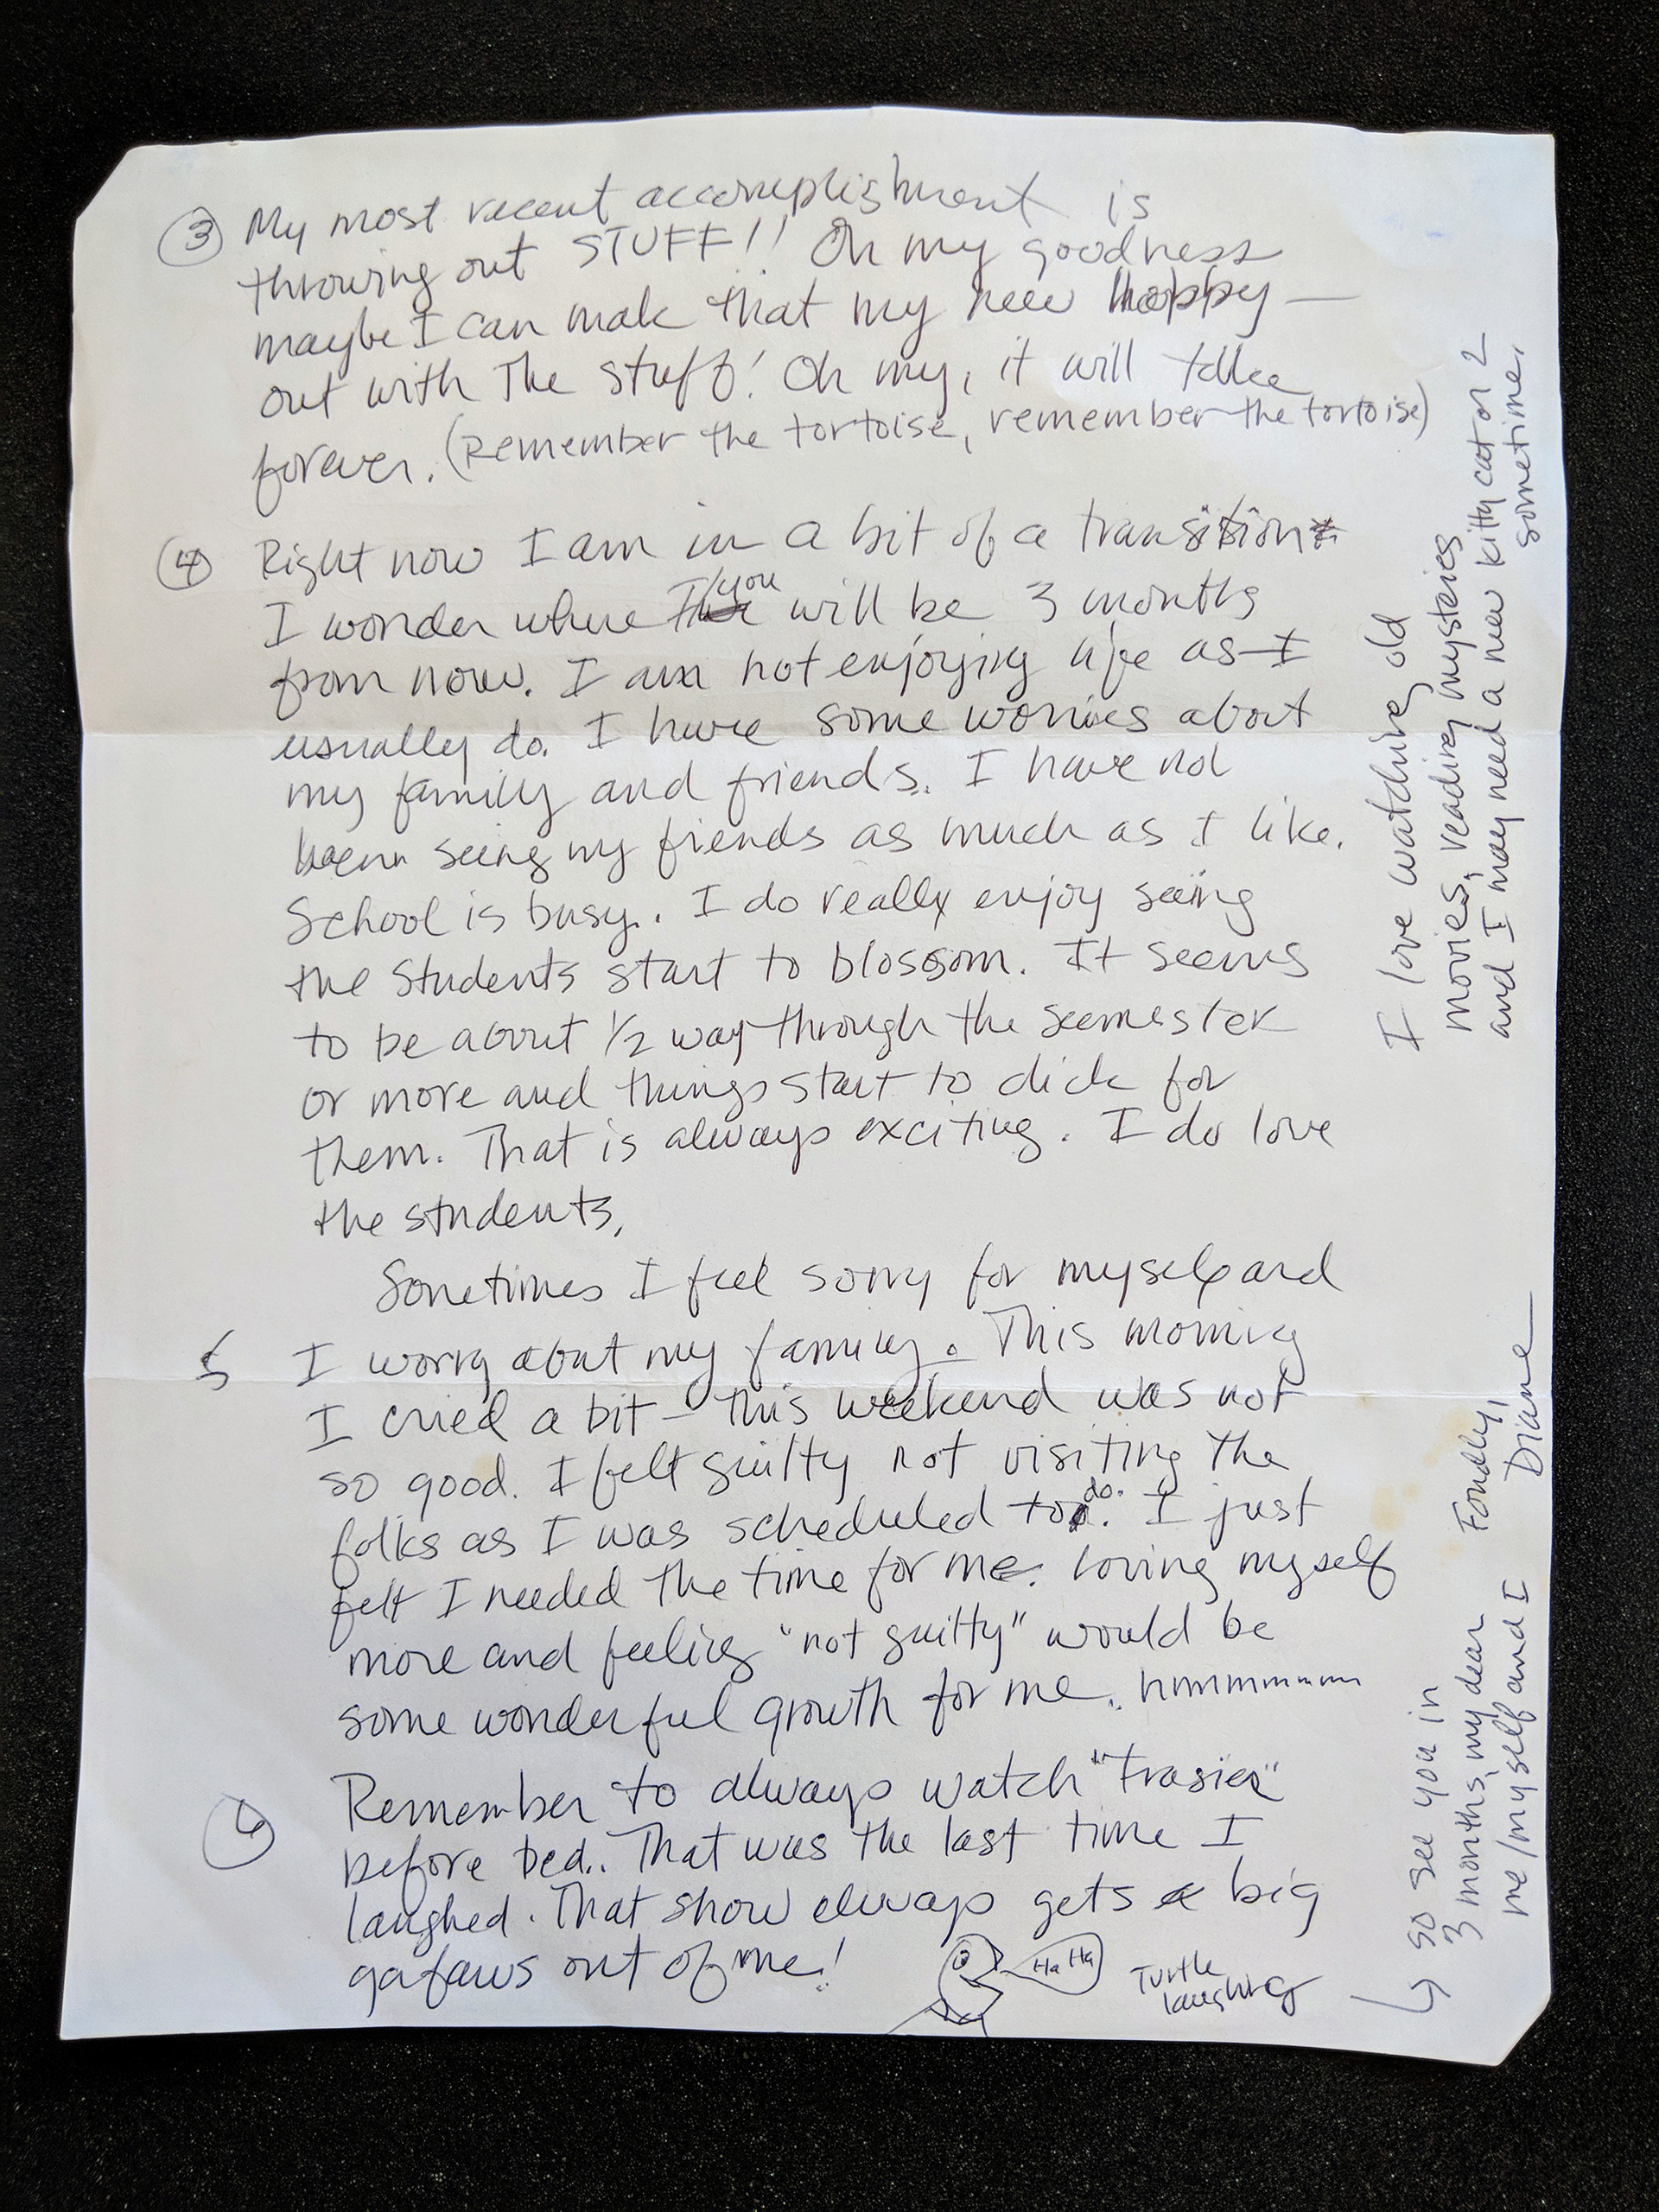 ③ My most recent accomplishment is
throwing out STUFF!! Oh my goodness
maybe I can make that my new hoppy —
out with the stuff! Oh my, it will take
forever. (Remember the tortoise, remember the tortoise)
④ Right now I am in a bit of a transition
I wonder where I/you will be 3 months
from now. I am not enjoying life as I
usually do. I have some worries about
my family and friends. I have not
been seeing my friends as much as I like.
School is busy. I do really enjoy seeing
the students start to blossom. It seems
to be about 1/2 way through the seemester
or more and things start to click for
them. That is always exciting. I do love
the students.
Sometimes I feel sorry for myself and
5 I worry about my family. This morning
I cried a bit — this weekend was not
so good. I felt guilty not visiting the
folks as I was scheduled to do. I just
felt I needed the time for me. Loving myself
more and feeling "not guilty" would be
some wonderful growth for me. hmmmmmmm
⑥ Remember to always watch "Frasier"
before bed.. That was the last time I
laughed. That show always gets big
gafaws out of me!
Ha Ha
Turtle
laughing
I love watching old
movies, reading mysteries
and I may need a new kitty cat or 2
sometime.
↳ so see you in
3 months, my dear
me/myself and I
Fondly,
Diane